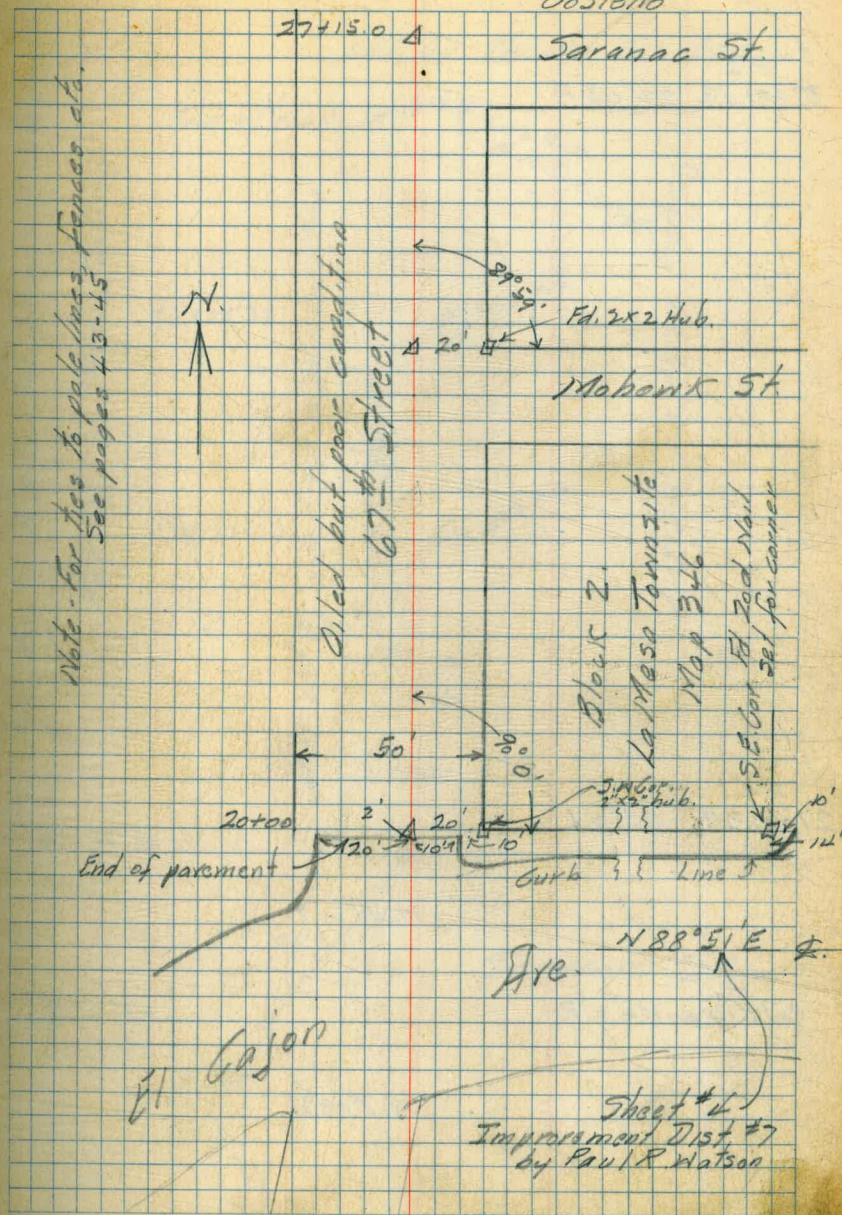 27+15.0
Saranac St.
Note - For ties to pole lines, fences etc.
See pages 43-45
N.
Oiled but poor condition
67th Street
89° 59'
20'
Fd. 2x2 Hub.
Mohawk St.
Block 2.
La Mesa Townsite
Map 346
S.E. Cor. Fd 20d Nail
set for corner
50'
90° 0'
S.W. Cor.
2"x2" hub.
20+00
2'
20'
10'
End of pavement
20'
10'
10'
14'
Curb Line
N 88° 51' E
Ave.
El Cajon
Sheet #4
Improvement Dist. #7
by Paul R. Watson